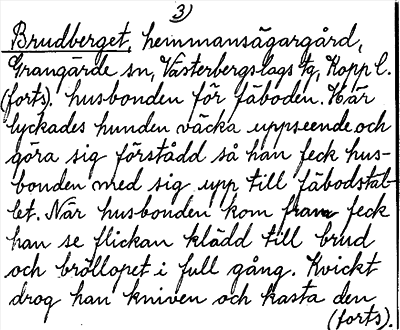 3)
Brudberget, hemmansägargård,
Grangärde sn, Västerbergslags tg, Kopp l.
(forts). husbonden för fäboden. Här
lyckades hunden väcka uppseende och
göra sig förstådd så han feck hus-
bonden med sig upp till fäbodstal-
let. När husbonden kom fram feck
han se flickan klädd till brud
och bröllopet i full gång. Kvickt
drog han kniven och kasta den
(forts).